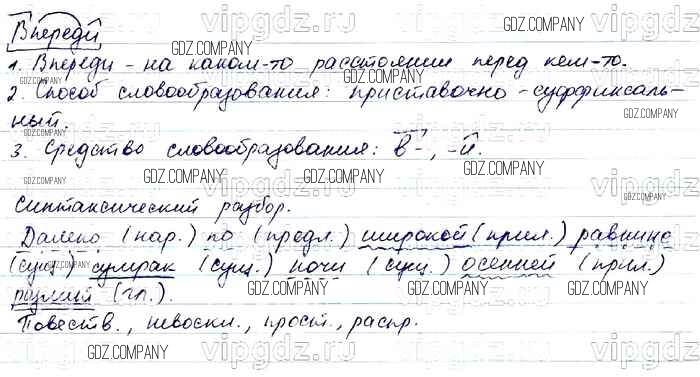 Впереди
1. Впереди - на каком-то расстоянии перед кем-то.
2. Способ словообразования: приставочно-суффиксаль-
ный.
3. Средство словообразования: в-, -и.
Синтаксический разбор.
Далеко (нар.) по (предл.) широкой (прил.) равнине
(сущ) сумрак (сущ.) ночи (сущ.) осенней (прил.)
(гл.).
Повеств., невоскл., прост., распр.
GDZ.COMPANY
vipgdz.ru